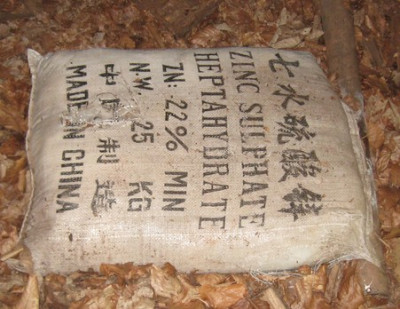 七水硫酸鋅
ZINC SULPHATE
HEPTAHYDRATE
ZN: 22% MIN
N.W. 25 KG
中國制造
MADE IN CHINA